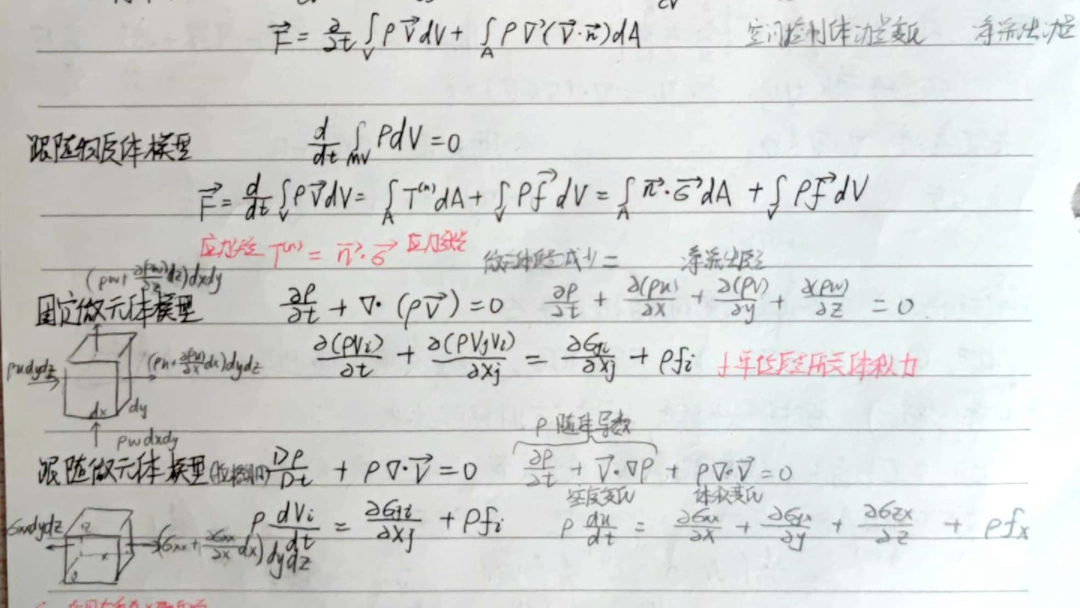 F⃗ = ∂/∂t ∫_V ρV⃗dV + ∫_A ρV⃗(V⃗·n⃗)dA 空间控制体动量变化 净流出动量
跟随物质体模型 d/dt ∫_MV ρdV = 0
F⃗ = d/dt ∫_V ρV⃗dV = ∫_A T⁽ⁿ⁾dA + ∫_V ρf⃗dV = ∫_A n⃗·σ⃗dA + ∫_V ρf⃗dV
T⁽ⁿ⁾ = n⃗·σ⃗ 应力张量
微元体质量减少 = 净流出质量
(ρw+∂(ρw)/∂z dz)dxdy
固定微元体模型 ∂ρ/∂t + ∇·(ρV⃗) = 0 ∂ρ/∂t + ∂(ρu)/∂x + ∂(ρv)/∂y + ∂(ρw)/∂z = 0
ρudydz (ρu+∂(ρu)/∂x dx)dydz ∂(ρVi)/∂t + ∂(ρVjVi)/∂xj = ∂σji/∂xj + ρfi f单位质量所受体积力
dx dy
ρwdxdy
ρ随体导数
跟随微元体模型 Dρ/Dt + ρ∇·V⃗ = 0 ∂ρ/∂t + V⃗·∇ρ + ρ∇·V⃗ = 0
密度变化 体积变化
σxxdydz (σxx+∂σxx/∂x dx)dydz ρ dVi/dt = ∂σji/∂xj + ρfi ρ du/dt = ∂σxx/∂x + ∂σyx/∂y + ∂σzx/∂z + ρfx